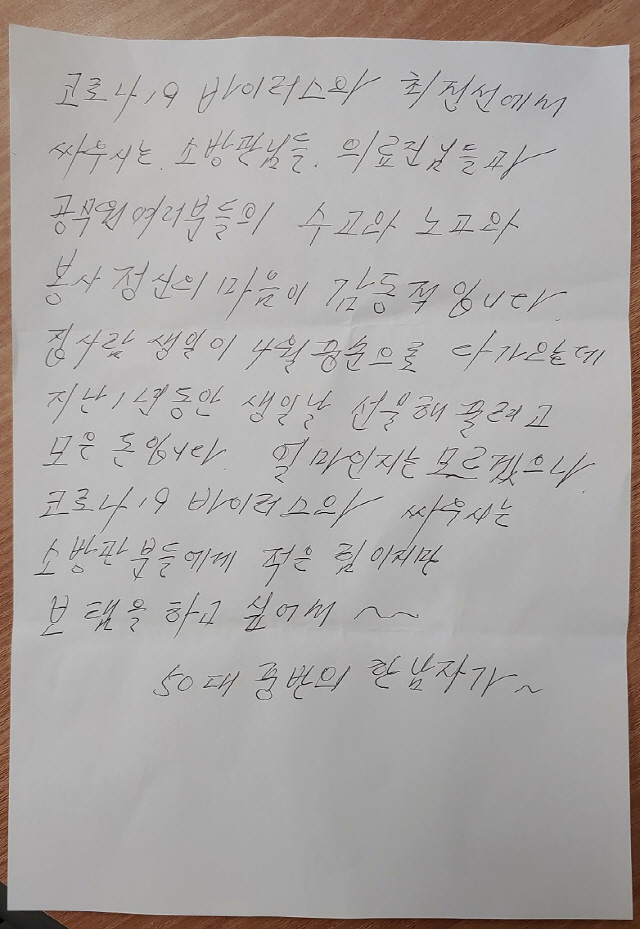 코로나19 바이러스와 최전선에서
싸우시는 소방관님들, 의료진님들과
공무원여러분들의 수고와 노고와
봉사 정신의 마음이 감동적입니다.
집사람 생일이 4월 중순으로 다가오는데
지난 1년동안 생일날 선물해 줄려고
모은 돈입니다. 얼마인지는 모르겠으나
코로나19 바이러스와 싸우시는
소방관분들에게 적은 힘이지만
보탬을 하고 싶어서 ~~
50대 중반의 한남자가~